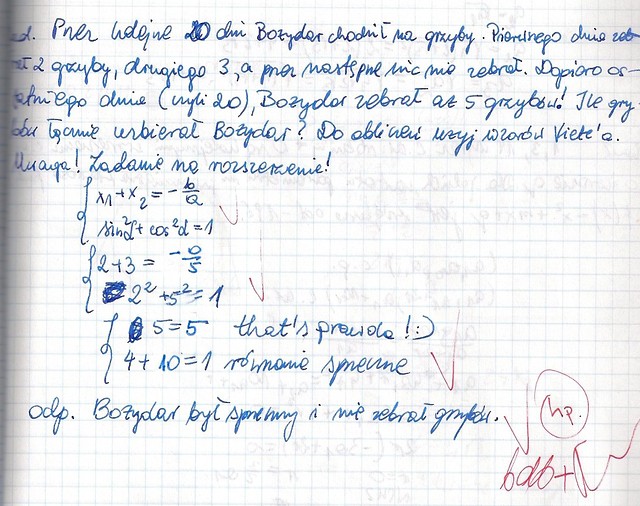 ad. Przez kolejne 20 dni Bożydar chodził na grzyby. Pierwszego dnia zeb-
rał 2 grzyby, drugiego 3, a przez następne nic nie zebrał. Dopiero os-
tatniego dnia (czyli 20), Bożydar zebrał aż 5 grzybów! Ile grzy-
bów łącznie uzbierał Bożydar? Do obliczeń użyj wzorów Viete'a.
Uwaga! Zadanie na rozszerzenie!
x1+x2 = -b/a
sin²α + cos²α = 1
2+3 = -0/5
2² + 5² = 1
5=5 that's prawda! :)
4+10=1 równanie sprzeczne
odp. Bożydar był sprzeczny i nie zebrał grzybów.
bdb+